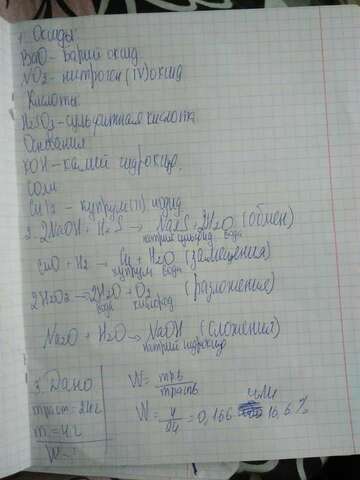 1. Оксиды
BaO - барий оксид
NO2 - нитроген (IV) оксид
Кислоты
H2SO3 - сульфитная кислота
Основания
KOH - калий гидроксид.
Соли
CuI2 - купрум (II) иодид
2. 2NaOH + H2S → Na2S + 2H2O (обмен)
натрий сульфид вода
CuO + H2 → Cu + H2O (замещения)
купрум вода
2H2O2 → 2H2O + O2 (разложения)
вода кислород
Na2O + H2O → NaOH (сложения)
натрий гидроксид
3. Дано
mраст = 24г
m = 4г
W - ?
W = mрв / mраств
или
W = 4/24 = 0,166 16,6%